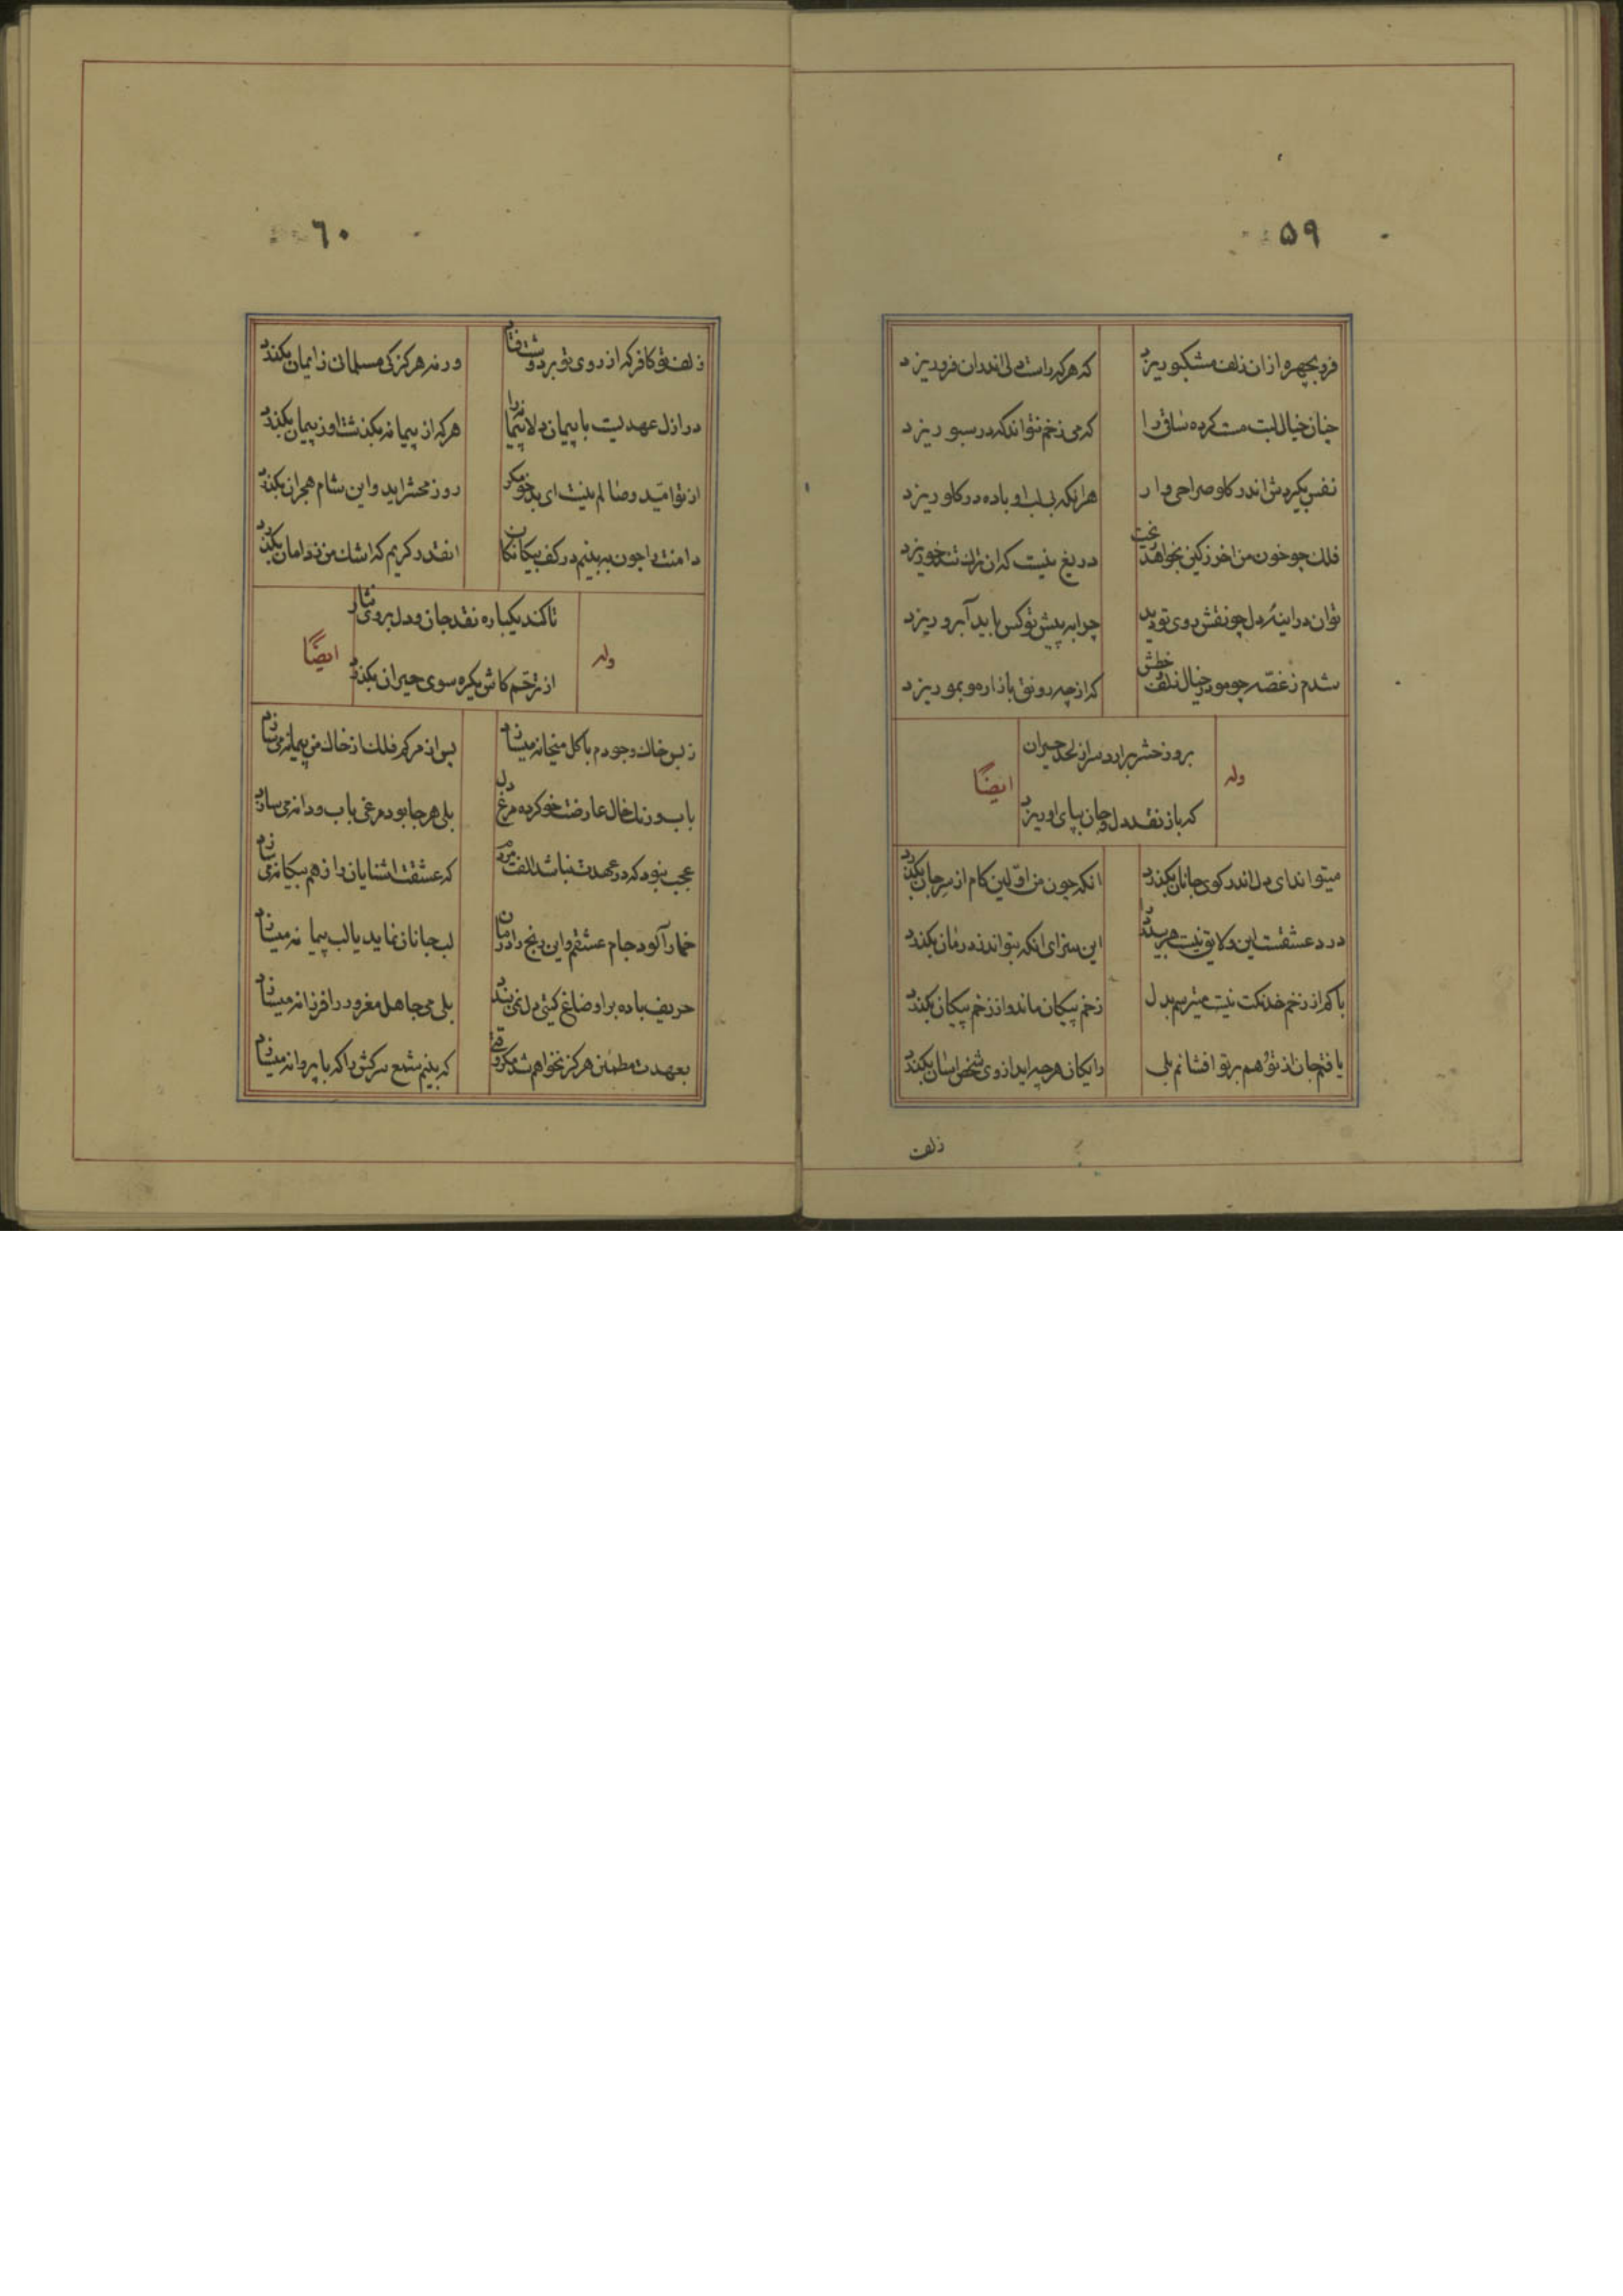 ۵۹
فرو بچهره ازان زلف مشکبو ریزد
که هر که راست دلی اندران فرو ریزد
چنان خیال لبت مست کرده ساقی را
که می زخم نتواند که در سبو ریزد
نفس بگیردش اندر کلو صراحی وار
هر انکه بی لب او باده در کلو ریزد
فلک چو خون من اخر زکین بخواهد ریخت
دریغ نیست که ان ترک تندخو ریزد
توان در اینه دل چو نقش روی تو دید
چرا به پیش تو کس باید آبرو ریزد
شدم ز غصه چو مو در خیال زلف خطش
که از چه رونق بازار مو بمو ریزد
وله
بروز حشر برارد سر از لحد حیران
که باز نقد دل و جان بپای او ریزد
ایضًا
میتواند ای دل اندر کوی جانان بکذرد
انکه چون من اولین کام از سر جان بکذرد
درد عشقست این و لایق نیست هر بیدرد را
این سزای انکه بتواند ز درمان بکذرد
باکم از زخم خدنکت نیست میترسم بدل
زخم پیکان ماند و از زخم پیکان بکذرد
یافتم جان از تو هم بر تو افشانم بلی
رایکان هر چه اید از وی شخص اسان بکذرد
زلف
۶۰
زلف تو کافر که از روی تو بر دوشت فتاد
ورنه هرکز کی مسلمانی ز ایمان بکذرد
در ازل عهدیست با پیمان دلا پیمانه را
هر که از پیمانه بکذشت او ز پیمان بکذرد
از تو امید وصالم نیست ای بدخو مکر
روز محشر اید و این شام هجران بکذرد
دامنت را چون ببینم در کف بیکانکان
انقدر کریم که اشک من ز دامان بکذرد
وله
تا کند یکباره نقد جان و دل بروی نثار
از ترحم کاش یکره سوی حیران بکذرد
ایضًا
ز بس خاک وجودم با کل میخانه میسازد
پس از مرکم فلک از خاک من پیمانه می سازد
باب و رنک خال عارضت خو کرده مرغ دل
بلی هر جا بود مرغی باب و دانه می سازد
عجب نبود که در عهدت نباشد الفت مردم
که عشقت اشنایان را ز هم بیکانه می سازد
خمار آلود جام عشقم و این رنج را درمان
لب جانان نماید یا لب پیمانه میسازد
حریف باده بر اوضاع کیتی دل نمی بندد
بلی می جاهل مغرور را فرزانه میسازد
بعهدت مطمئن هرکز نخواهم شد مکر وقتی
که بینم شمع سرکش را که با پروانه میسازد